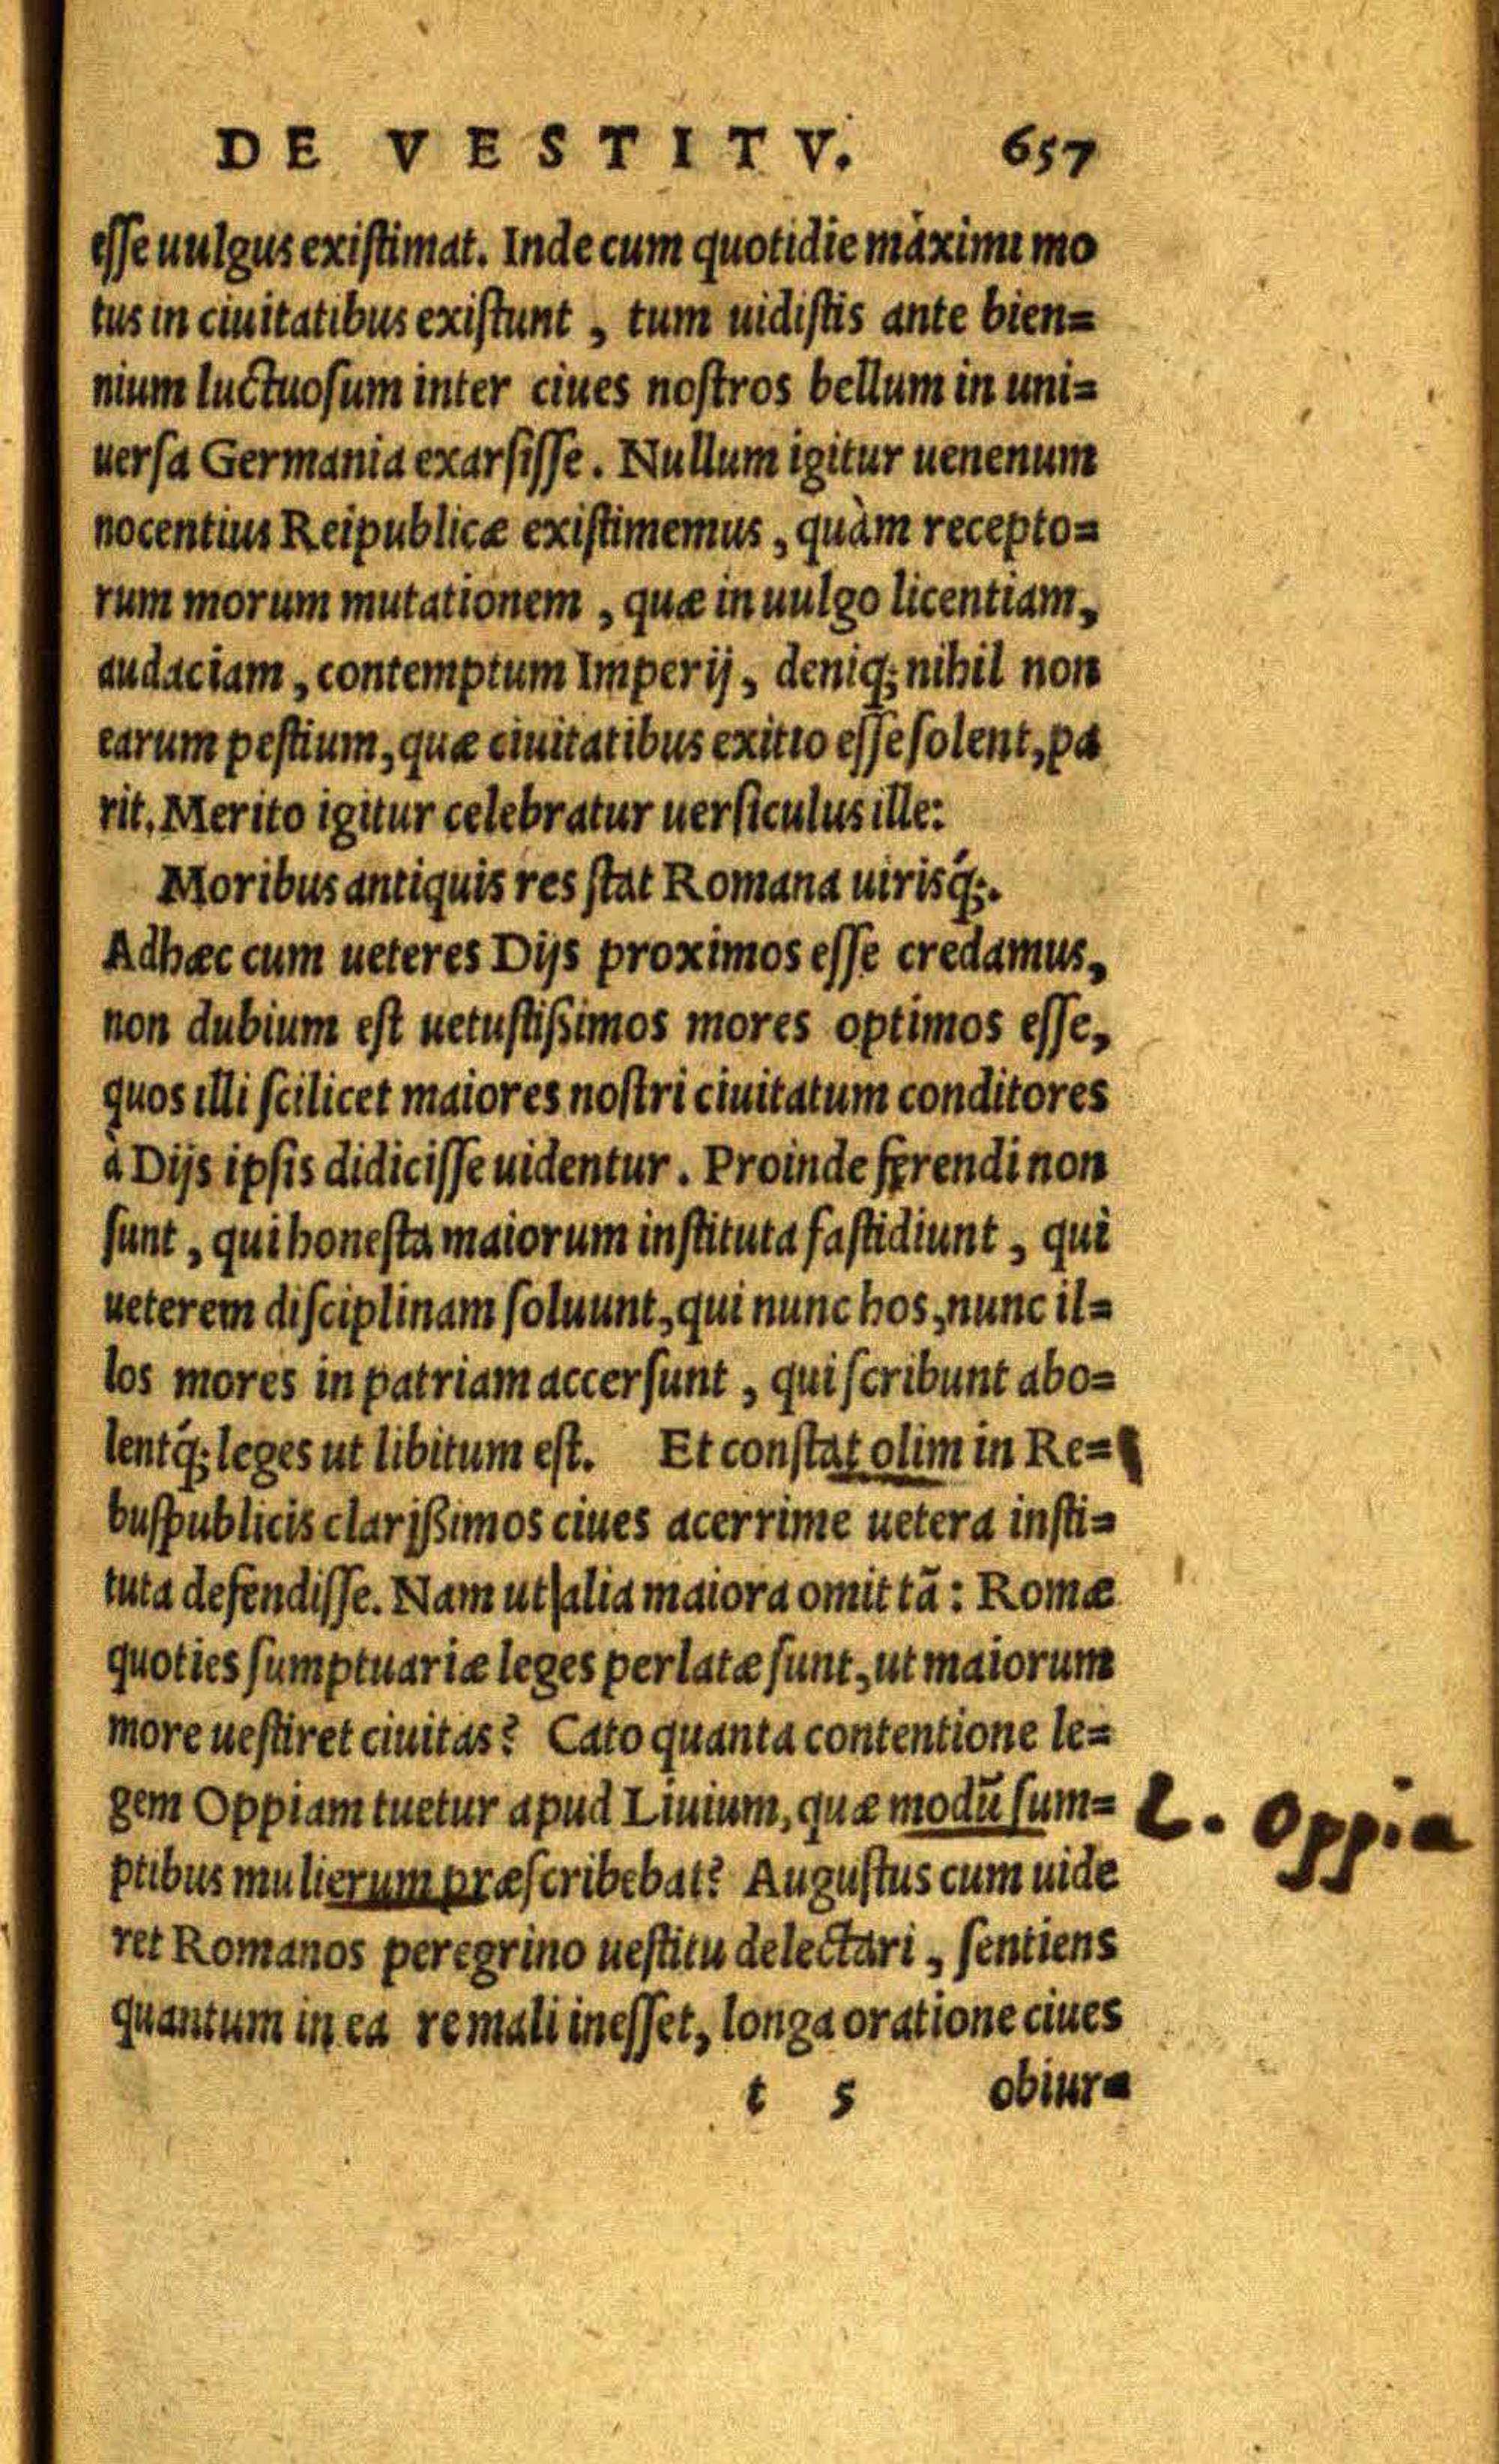 DE VESTITV. 657
esse uulgus existimat. Inde cum quotidie maximi mo
tus in ciuitatibus existunt, tum uidistis ante bien=
nium luctuosum inter ciues nostros bellum in uni=
uersa Germania exarsisse. Nullum igitur uenenum
nocentius Reipublicæ existimemus, quàm recepto=
rum morum mutationem, quæ in uulgo licentiam,
audaciam, contemptum Imperij, deniq; nihil non
earum pestium, quæ ciuitatibus exitio esse solent, pa
rit. Merito igitur celebratur uersiculus ille:
Moribus antiquis res stat Romana uirisq́;.
Adhæc cum ueteres Dijs proximos esse credamus,
non dubium est uetustißimos mores optimos esse,
quos illi scilicet maiores nostri ciuitatum conditores
à Dijs ipsis didicisse uidentur. Proinde ferendi non
sunt, qui honesta maiorum instituta fastidiunt, qui
ueterem disciplinam soluunt, qui nunc hos, nunc il=
los mores in patriam accersunt, qui scribunt abo=
lentq́; leges ut libitum est. Et constat olim in Re=
buspublicis clarißimos ciues acerrime uetera insti=
tuta defendisse. Nam ut alia maiora omittā: Romæ
quoties sumptuariæ leges perlatæ sunt, ut maiorum
more uestiret ciuitas? Cato quanta contentione le=
gem Oppiam tuetur apud Liuium, quæ modū sum= L. Oppia
ptibus mulierum præscribebat? Augustus cum uide
ret Romanos peregrino uestitu delectari, sentiens
quantum in ea re mali inesset, longa oratione ciues
t 5 obiur=